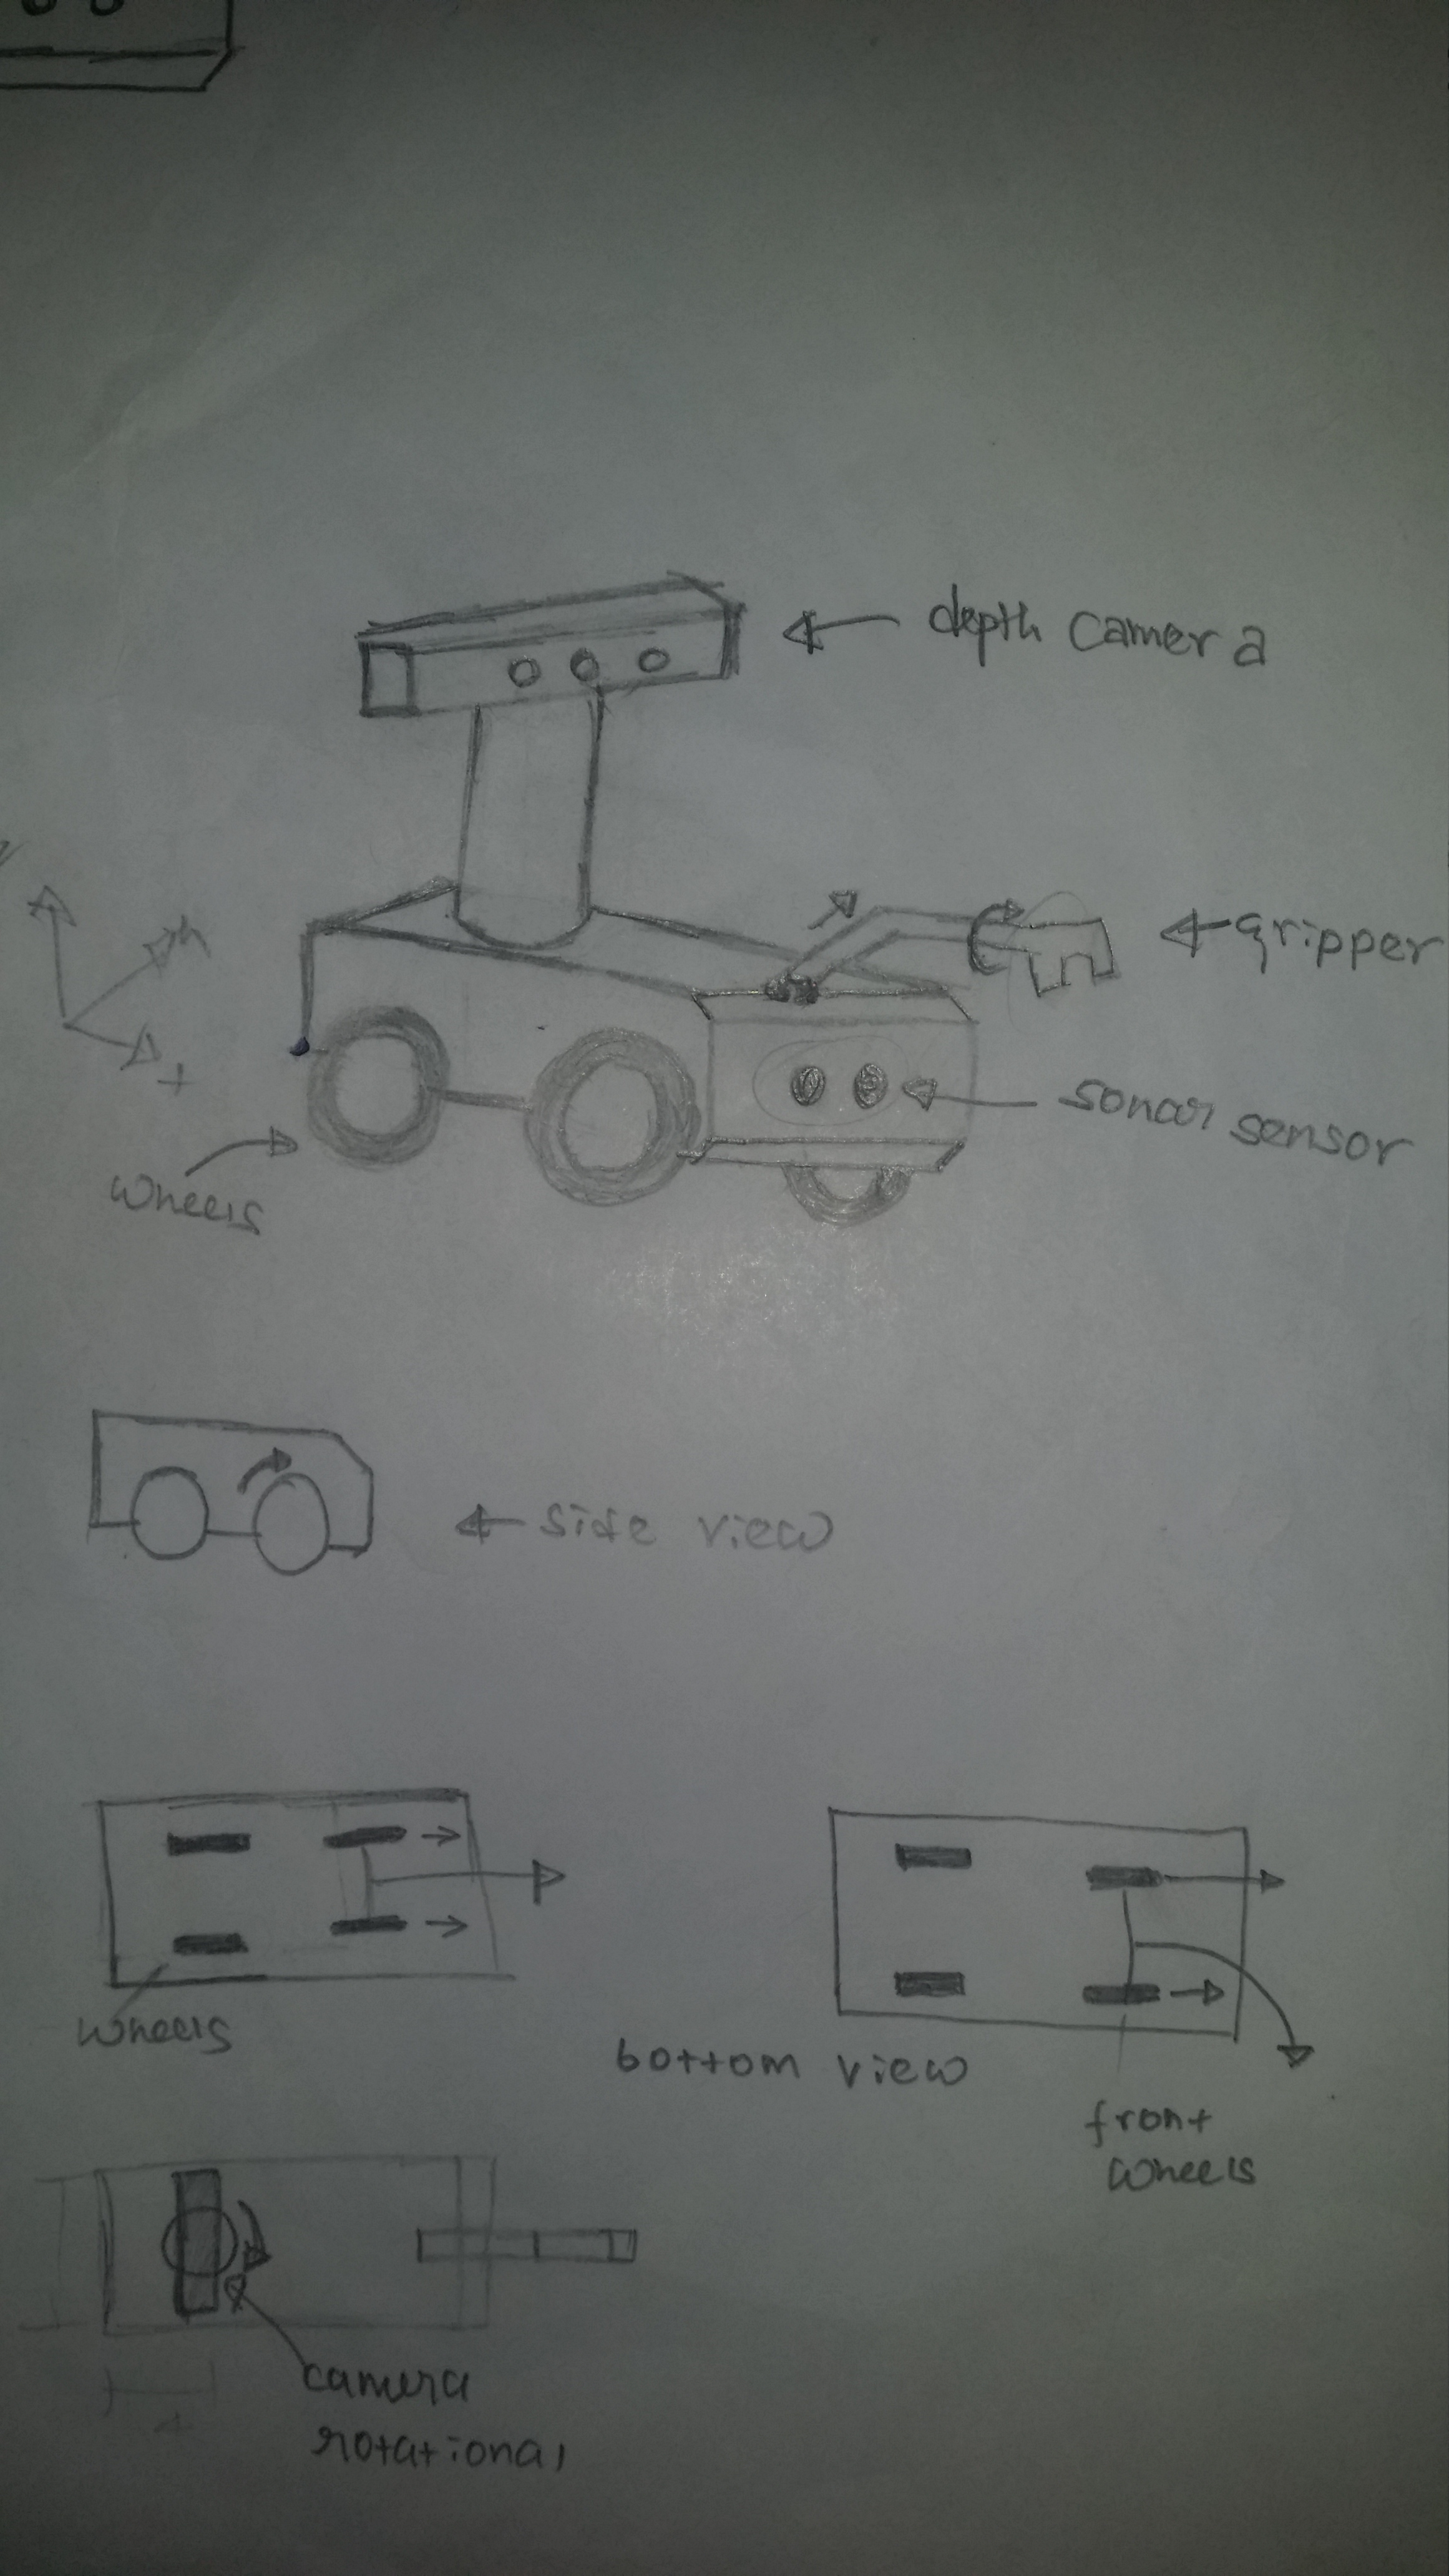 depth camera
gripper
sonar sensor
wheels
side view
wheels
bottom view
front
wheels
camera
rotational